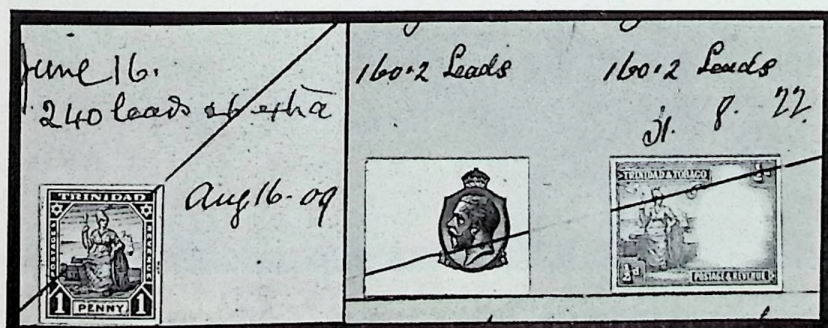 June 16.
240 leads extra
Aug 16-09
TRINIDAD
POSTAGE
REVENUE
1 PENNY 1
160.2 Leads
160.2 Leads
31. 8. 22
TRINIDAD & TOBAGO
½d
½d
POSTAGE & REVENUE